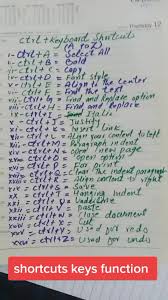 Thursday 12
Ctrl + Keyboard Shortcuts
(A to Z)
i- ctrl + A = Select All
ii- ctrl + B = Bold
iii- ctrl + C = Copy
iv- ctrl + D = Font style
v- ctrl + E = Align to the Center
vi- ctrl + F = Find the text
vii- ctrl + G = Find and replace option
viii- ctrl + H = Find and Replace
ix- ctrl + I = Italic
x- ctrl + J = Justify
xi- ctrl + K = Insert Link
xii- ctrl + L = Align your content to left
xiii- ctrl + M = Paragraph indent
xiv- ctrl + N = open new page
xv- ctrl + O = open option
xvi- ctrl + P = For print
xvii- ctrl + Q = Clear the indent paragraph
xviii- ctrl + R = Align content to right
xix- ctrl + S = Save
xx- ctrl + T = Hanging indent
xxi- ctrl + U = Underline
xxii- ctrl + V = Paste
xxiii- ctrl + W = close document
xxiv- ctrl + X = Cut
xxv- ctrl + Y = Used for redo
xxvi- ctrl + Z = Used for undo
shortcuts keys function